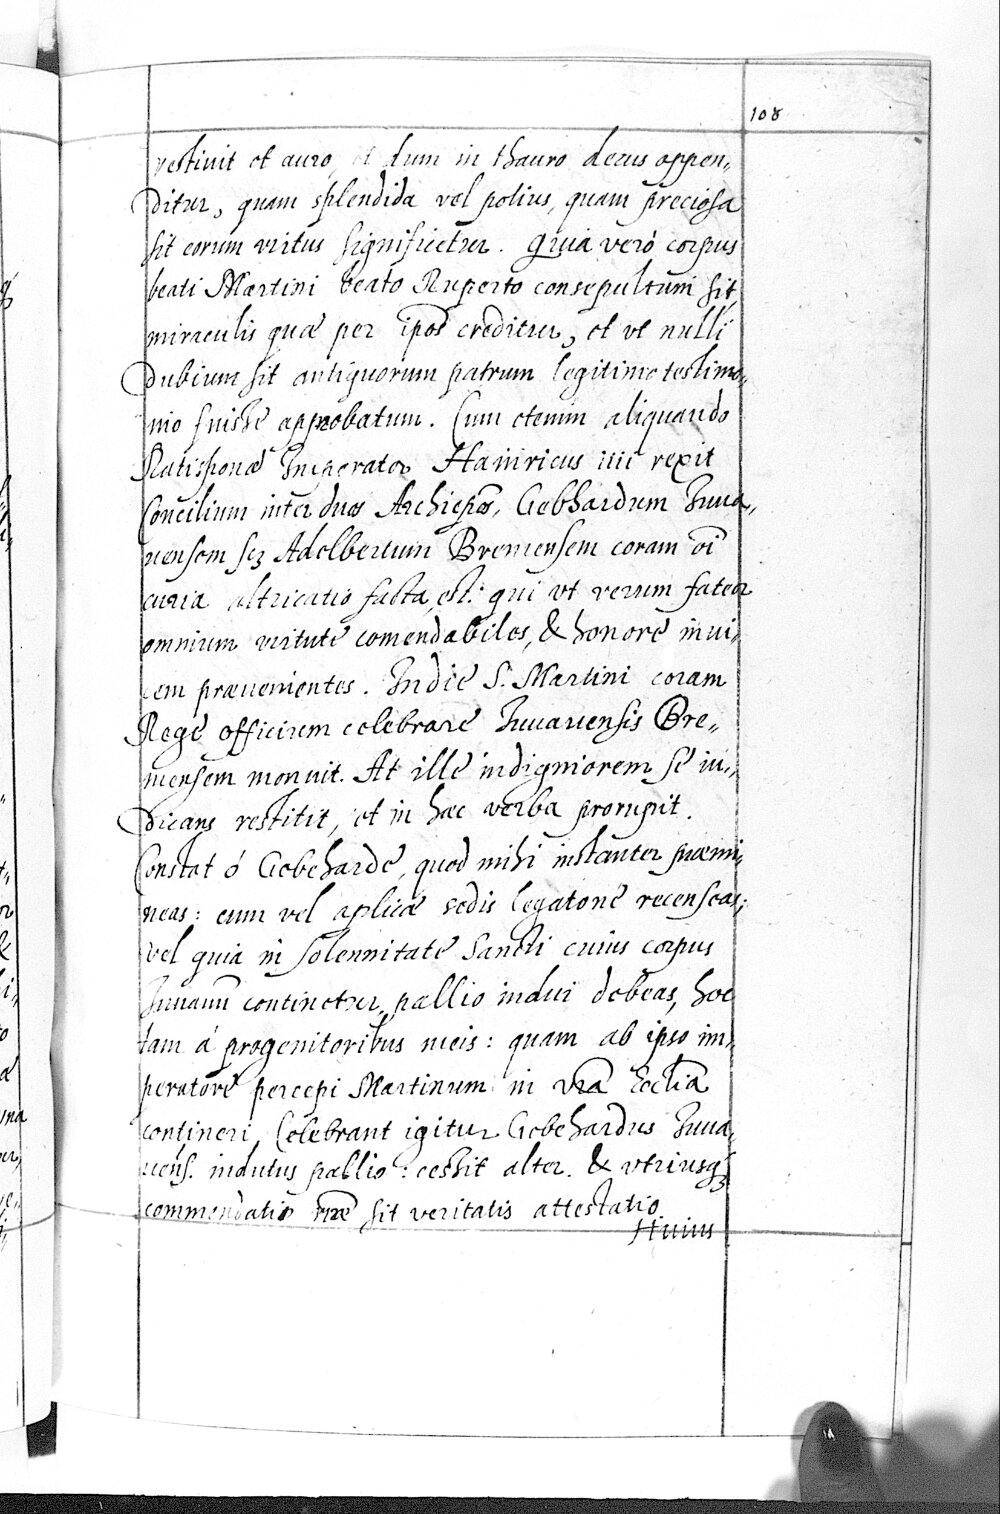 108
vestivit et auro, et dum in thauro decus appen„
ditur, quam splendida vel potius, quam preciosa
sit eorum virtus significetur. Quia veró corpus
beati Martini beato Ruperto consepultum sit,
miraculis quæ per ipos̄ creditur, et vt nulli
dubium sit antiquorum patrum legitimo testimo„
nio fuisse approbatum. Cum etenim aliquando
Ratisponæ Imperator Hainricus iiii rexit
Concilium inter duos Archiepōs, Gebhardum Iuua„
uensem scz Adelbertum Bremensem coram oī
curia altricatio facta est: qui vt verum fateor
omnium virtute comendabiles, & honore inui„
cem præuenientes. In die S. Martini coram
Rege officium celebrare Iuuauensis Bre„
mensem monuit. At ille indigniorem se iu„
dicans restitit, et in hæc verba prorupit.
Constat ó Gebeharde, quod mihi instanter præmi„
neas: cum vel aplicæ sedis legatione recenseas,
vel quia in solennitate Sancti cuius corpus
Iuuauū continetur, pallio indui debeas, hoc
tam á progenitoribus meis: quam ab ipso im„
peratore percepi Martinum in vrā Ecclīa
contineri, Celebrant igitur Gebehardus Iuua„
uens. indutus pallio: cessit alter. & vtriusq
commendatio vræ sit veritatis attestatio.
Huius